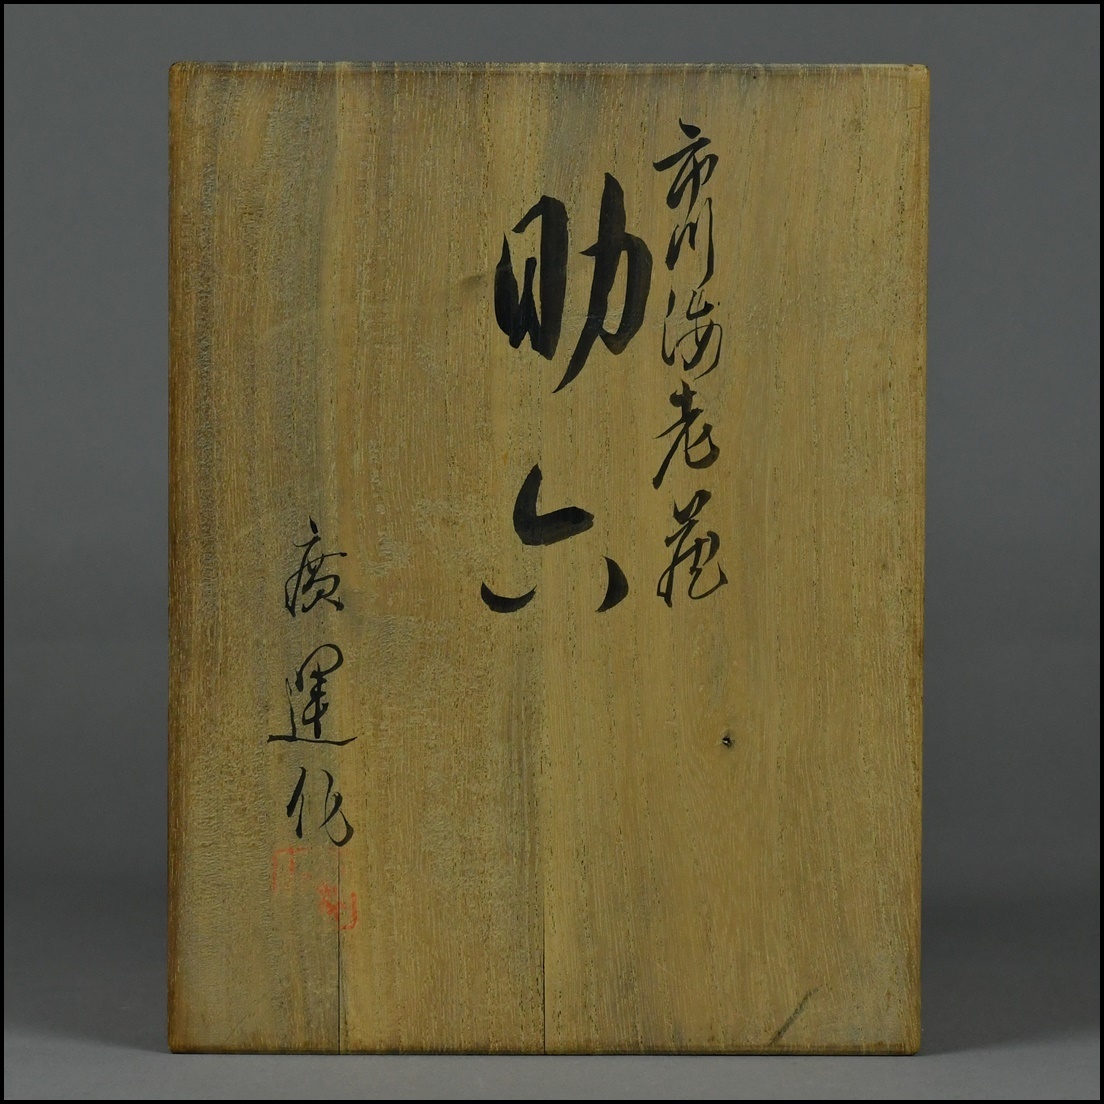 市川海老蔵
助六
廣運作